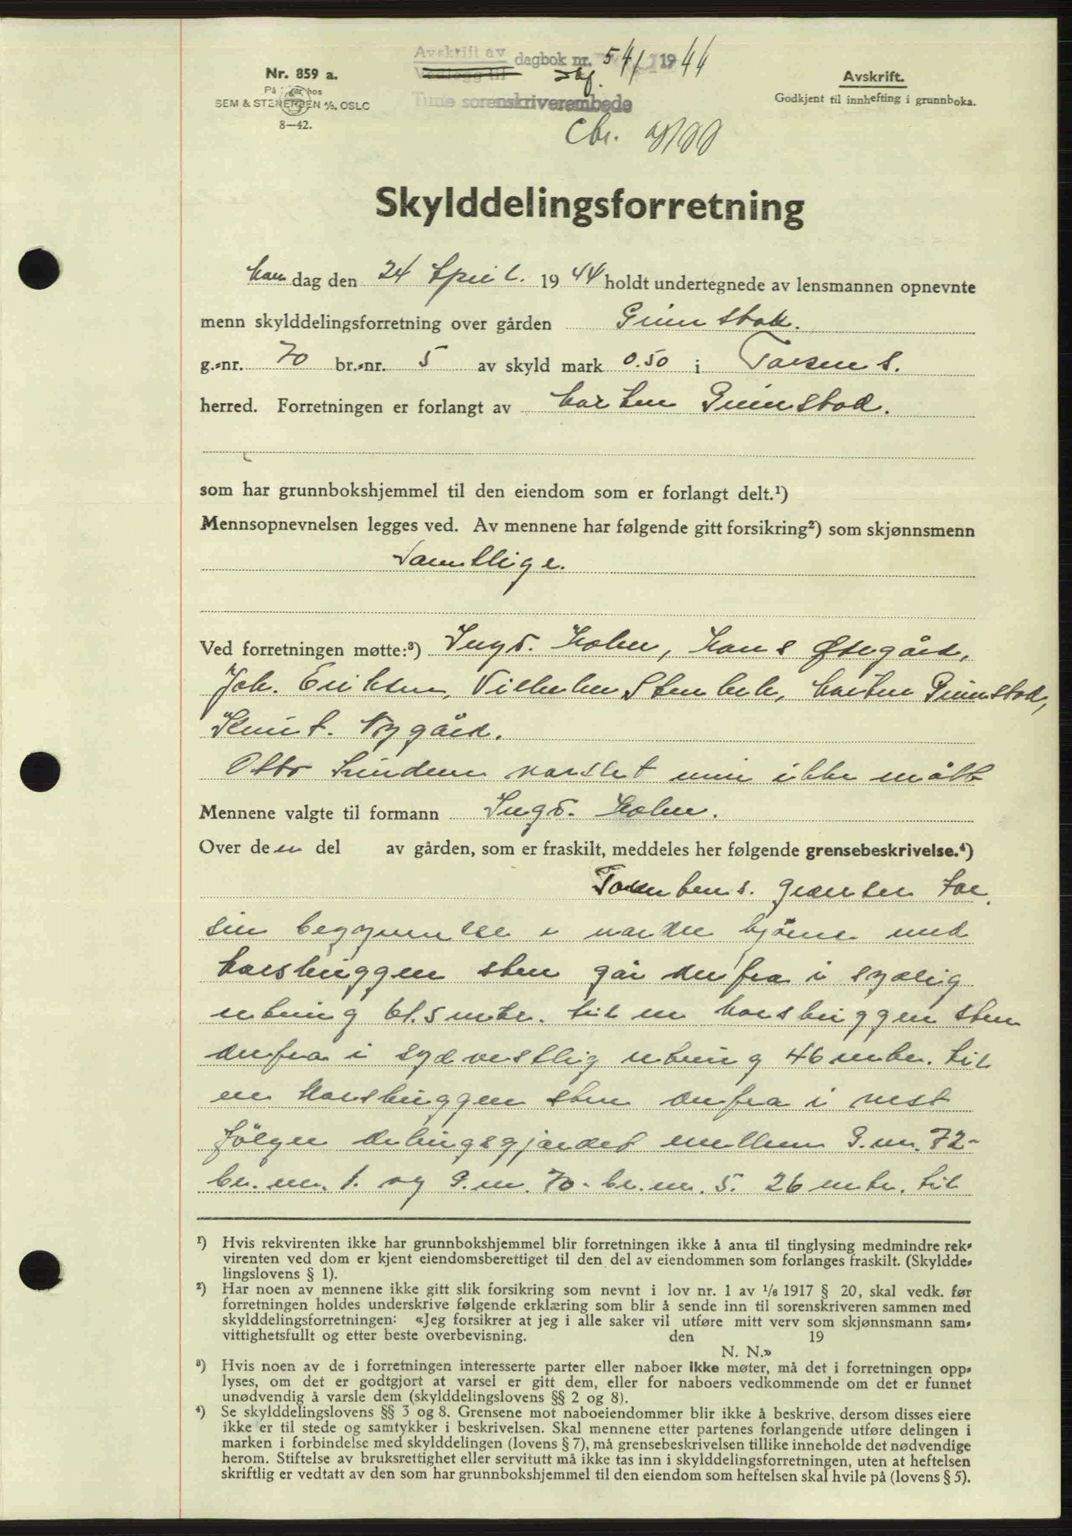 Avskrift av
Vedlegg til dagbok nr. 541 1944
Tune sorenskriverembede
Nr. 859 a.
På lager hos
SEM & STENERSEN A/S, OSLO
8—42.
Avskrift.
Godkjent til innhefting i grunnboka.
Skylddelingsforretning
Man dag den 24 April. 1944 holdt undertegnede av lensmannen opnevnte
menn skylddelingsforretning over gården Grimstad.
g.-nr. 70 br.-nr. 5 av skyld mark 0.50 i
herred. Forretningen er forlangt av Marten Grimstad.
som har grunnbokshjemmel til den eiendom som er forlangt delt.¹)
Mennsopnevnelsen legges ved. Av mennene har følgende gitt forsikring²) som skjønnsmenn
Samtlige.
Ved forretningen møtte:³) Ingv. Holen, Hans Østgård,
Joh. Eriksen, Vilhelm Stenbek, Marten Grimstad,
Knut Nygård.
Otto varslet men ikke møtt
Mennene valgte til formann Ingv. Holen.
Over den del av gården, som er fraskilt, meddeles her følgende grensebeskrivelse.⁴)
grensen tar
sin begynnelse i nordre hjörne med
korshuggen sten går derfra i sydlig
retning 61.5 mtr. til en korshuggen sten
derfra i sydvestlig retning 46 mtr. til
en korshuggen sten derfra i vest
fölger delingsgjærdet mellem G.nr. 72-
br.nr. 1. og G.nr. 70- br.nr. 5. 26 mtr. til
¹) Hvis rekvirenten ikke har grunnbokshjemmel blir forretningen ikke å anta til tinglysing medmindre rek-
virenten ved dom er kjent eiendomsberettiget til den del av eiendommen som forlanges fraskilt. (Skyldde-
lingslovens § 1).
²) Har noen av mennene ikke gitt slik forsikring som nevnt i lov nr. 1 av 1/6 1917 § 20, skal vedk. før
forretningen holdes underskrive følgende erklæring som blir å sende inn til sorenskriveren sammen med
skylddelingsforretningen: «Jeg forsikrer at jeg i alle saker vil utføre mitt verv som skjønnsmann sam-
vittighetsfullt og etter beste overbevisning. den 19
N. N.»
³) Hvis noen av de i forretningen interesserte parter eller naboer ikke møter, må det i forretningen opp-
lyses, om det er godtgjort at varsel er gitt dem, eller for naboers vedkommende om det er funnet
unødvendig å varsle dem (skylddelingslovens §§ 2 og 8).
⁴) Se skylddelingslovens §§ 3 og 8. Grensene mot naboeiendommer blir ikke å beskrive, dersom disses eiere
ikke er til stede og samtykker i beskrivelsen. Skal mennene etter partenes forlangende utføre delingen i
marken i forbindelse med skylddelingen (lovens § 7), må grensebeskrivelsen tillike inneholde det nødvendige
herom. Stiftelse av bruksrettighet eller servitutt må ikke tas inn i skylddelingsforretningen, uten at heftelsen
skriftlig er vedtatt av den som har grunnbokshjemmel til den eiendom som heftelsen skal hvile på (lovens § 5).